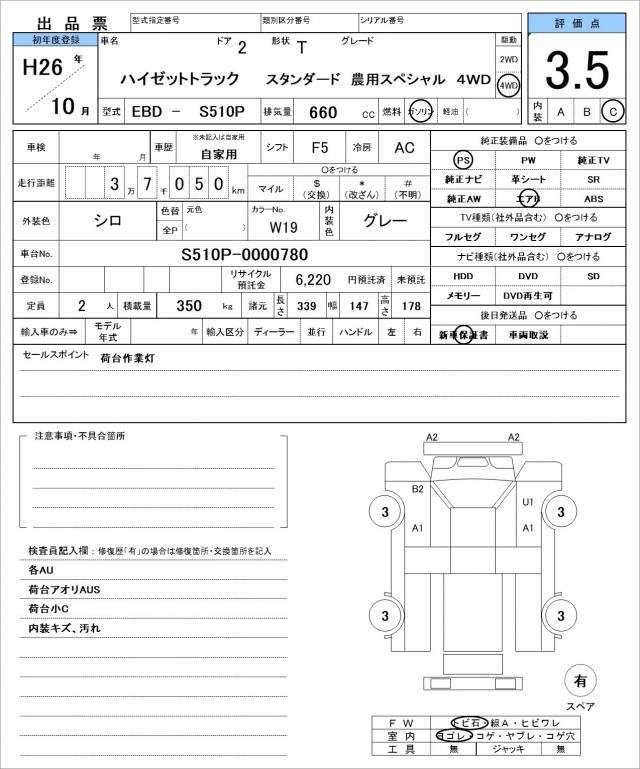 出品票 型式指定番号 類別区分番号 シリアル番号
評価点
3.5
内装 A B C
初年度登録 車名 ドア 2 形状 T グレード 駆動
H26 年
10 月
2WD
4WD
ハイゼットトラック スタンダード 農用スペシャル 4WD
型式 EBD − S510P 排気量 660 cc 燃料 ガソリン 軽油 ( )
車検 年 月 車歴 ※未記入は自家用 自家用 シフト F5 冷房 AC
走行距離 3 万 7 千 0 5 0 km 〇をつける
マイル $ (交換) * (改ざん) # (不明)
外装色 シロ 色替 元色 全P ( ) カラーNo. W19 内装色 グレー
車台No. S510P-0000780
登録No. リサイクル預託金 6,220 円預託済 未預託
定員 2 人 積載量 350 kg 諸元 長さ 339 幅 147 高さ 178
輸入車のみ⇒ モデル年式 年 輸入区分 ディーラー 並行 ハンドル 左 右
純正装備品 〇をつける
PS PW 純正TV
純正ナビ 革シート SR
純正AW エアB ABS
TV種類(社外品含む) 〇をつける
フルセグ ワンセグ アナログ
ナビ種類(社外品含む) 〇をつける
HDD DVD SD
メモリー DVD再生可
後日発送品 〇をつける
新車保証書 車両取説
セールスポイント 荷台作業灯
注意事項・不具合箇所
検査員記入欄：修復歴「有」の場合は修復箇所・交換箇所を記入
各AU
荷台アオリAUS
荷台小C
内装キズ、汚れ
A2 A2
B2
U1
3 3
A1 A1
3 3
有
スペア
FW トビ石・線A・ヒビワレ
室内 ヨゴレ・コゲ・ヤブレ・コゲ穴
工具 無 ジャッキ 無